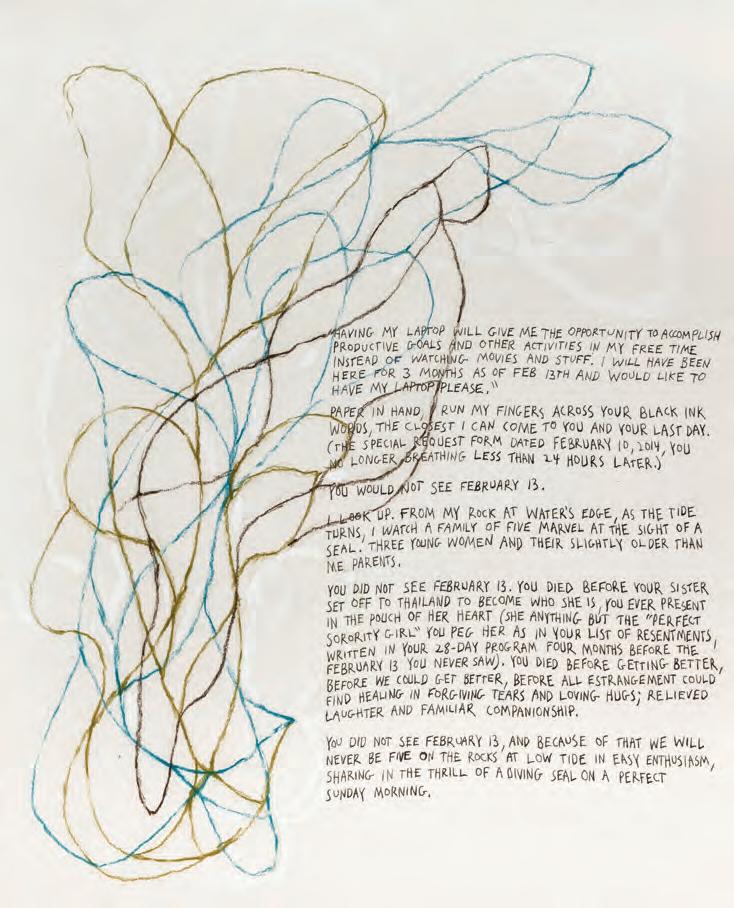 "HAVING MY LAPTOP WILL GIVE ME THE OPPORTUNITY TO ACCOMPLISH
PRODUCTIVE GOALS AND OTHER ACTIVITIES IN MY FREE TIME
INSTEAD OF WATCHING MOVIES AND STUFF. I WILL HAVE BEEN
HERE FOR 3 MONTHS AS OF FEB 13TH AND WOULD LIKE TO
HAVE MY LAPTOP PLEASE."
PAPER IN HAND, I RUN MY FINGERS ACROSS YOUR BLACK INK
WORDS, THE CLOSEST I CAN COME TO YOU AND YOUR LAST DAY.
(THE SPECIAL REQUEST FORM DATED FEBRUARY 10, 2014, YOU
NO LONGER BREATHING LESS THAN 24 HOURS LATER.)
YOU WOULD NOT SEE FEBRUARY 13.
I LOOK UP. FROM MY ROCK AT WATER'S EDGE, AS THE TIDE
TURNS, I WATCH A FAMILY OF FIVE MARVEL AT THE SIGHT OF A
SEAL. THREE YOUNG WOMEN AND THEIR SLIGHTLY OLDER THAN
ME PARENTS.
YOU DID NOT SEE FEBRUARY 13. YOU DIED BEFORE YOUR SISTER
SET OFF TO THAILAND TO BECOME WHO SHE IS, YOU EVER PRESENT
IN THE POUCH OF HER HEART (SHE ANYTHING BUT THE "PERFECT
SORORITY GIRL" YOU PEG HER AS IN YOUR LIST OF RESENTMENTS,
WRITTEN IN YOUR 28-DAY PROGRAM FOUR MONTHS BEFORE THE
FEBRUARY 13 YOU NEVER SAW). YOU DIED BEFORE GETTING BETTER,
BEFORE WE COULD GET BETTER, BEFORE ALL ESTRANGEMENT COULD
FIND HEALING IN FORGIVING TEARS AND LOVING HUGS; RELIEVED
LAUGHTER AND FAMILIAR COMPANIONSHIP.
YOU DID NOT SEE FEBRUARY 13, AND BECAUSE OF THAT WE WILL
NEVER BE FIVE ON THE ROCKS AT LOW TIDE IN EASY ENTHUSIASM,
SHARING IN THE THRILL OF A DIVING SEAL ON A PERFECT
SUNDAY MORNING.